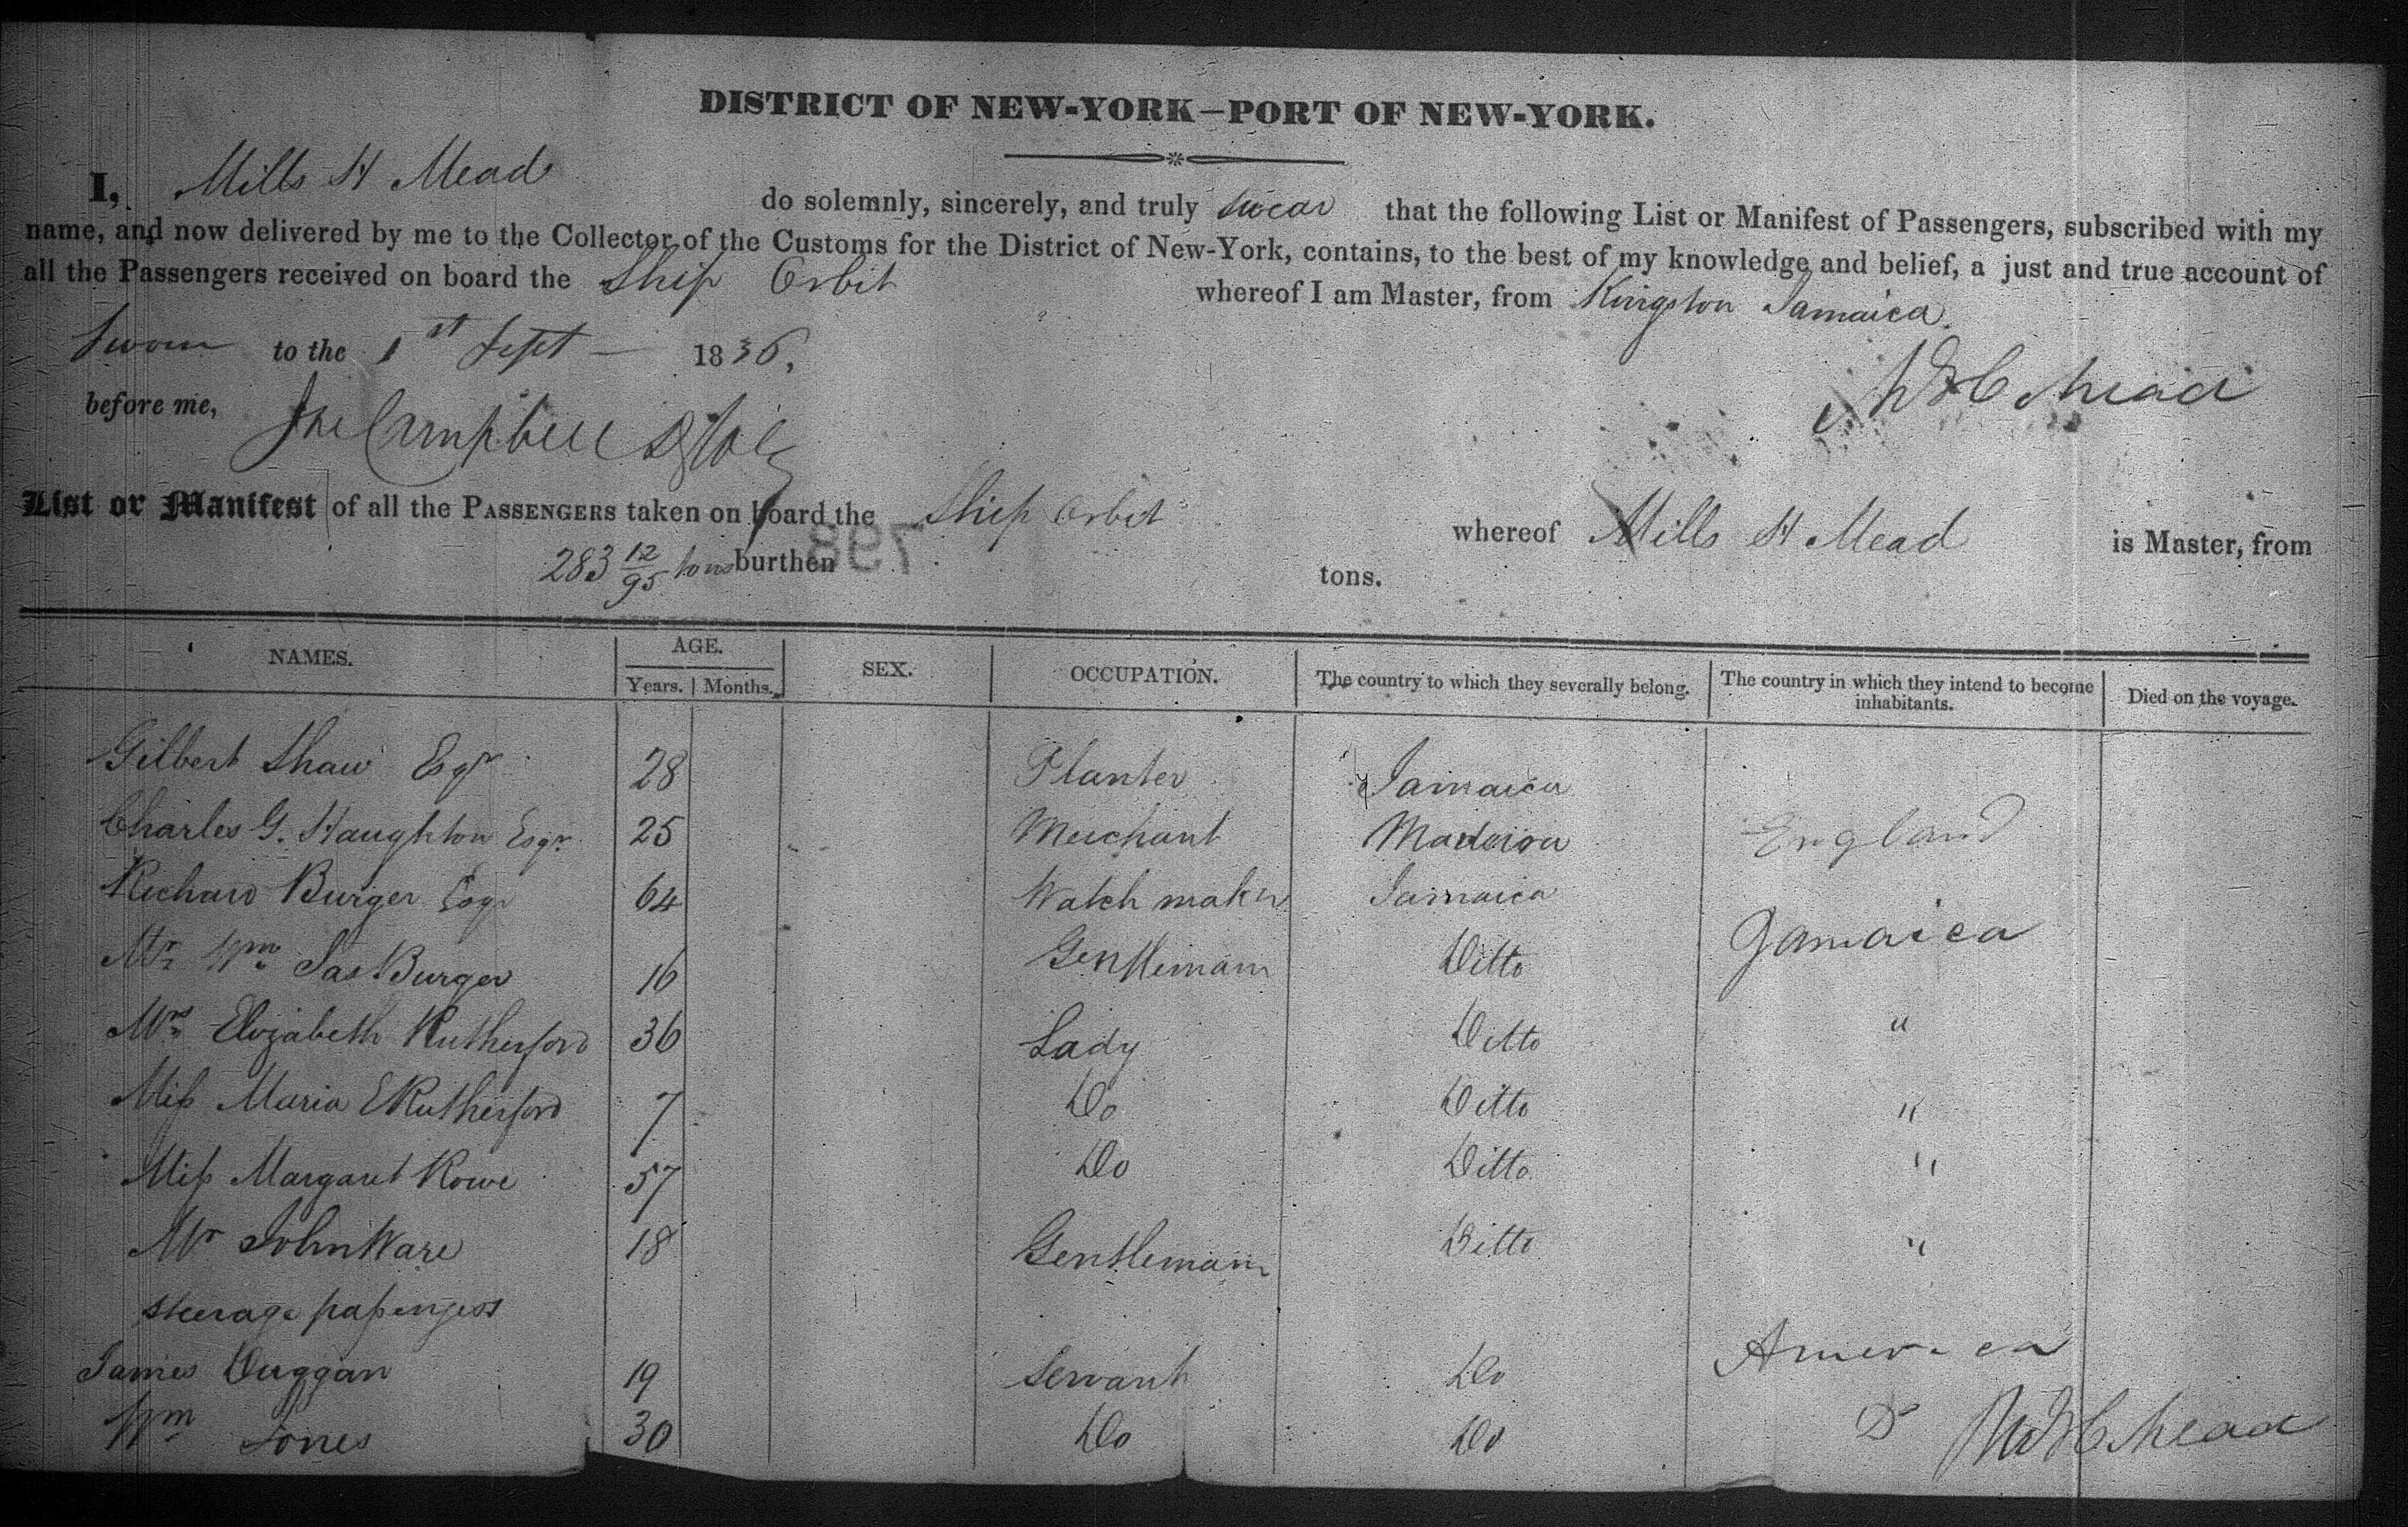 DISTRICT OF NEW-YORK—PORT OF NEW-YORK.
I, Mills H Mead do solemnly, sincerely, and truly swear that the following List or Manifest of Passengers, subscribed with my
name, and now delivered by me to the Collector of the Customs for the District of New-York, contains, to the best of my knowledge and belief, a just and true account of
all the Passengers received on board the Ship Orbit whereof I am Master, from Kingston Jamaica.
Sworn to the 1st Sept — 1836.
before me, Campbell Mead
List or Manifest of all the PASSENGERS taken on board the Ship Orbit whereof Mills H Mead is Master, from
283 12/95 tons burthen 798 tons.
NAMES. AGE. Years. Months. SEX. OCCUPATION. The country to which they severally belong. The country in which they intend to become inhabitants. Died on the voyage.
Gilbert Shaw Esqr 28 Planter Jamaica
Charles G. Haughton Esqr 25 Merchant Madeira England
Richard Burger Esqr 64 Watch maker Jamaica
Mr Wm Jas Burger 16 Gentlemam Ditto Jamaica
Mrs Elizabeth Rutherford 36 Lady Ditto "
Miss Maria E Rutherford 7 Do Ditto "
Miss Margaret Rowe 57 Do Ditto "
Mr John Ware 18 Gentlemam Ditto "
Steerage passengers
James Duggan 19 Servant Do America
Wm Jones 30 Do Do Do Mead